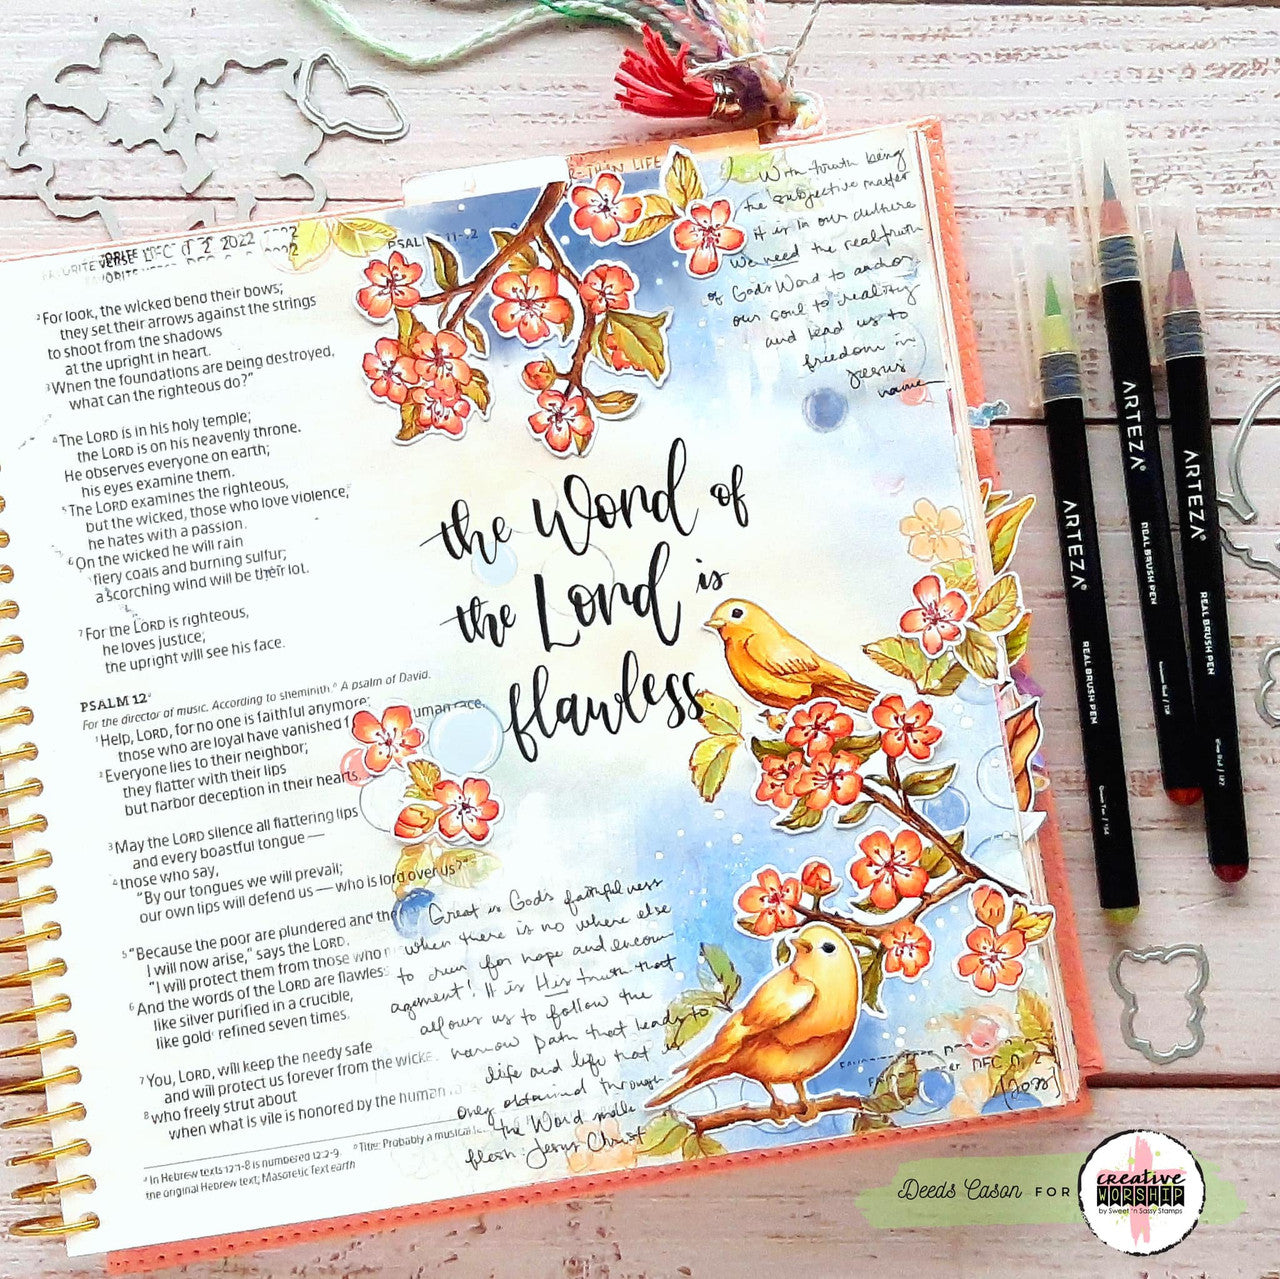 THAN LIFE
PSAL 11-12
FAVORITE VERSE DEC 2022
²For look, the wicked bend their bows;
they set their arrows against the strings
to shoot from the shadows
at the upright in heart.
³When the foundations are being destroyed,
what can the righteous do?"
⁴The LORD is in his holy temple;
the LORD is on his heavenly throne.
He observes everyone on earth;
his eyes examine them.
⁵The LORD examines the righteous,
but the wicked, those who love violence,
he hates with a passion.
⁶On the wicked he will rain
fiery coals and burning sulfur;
a scorching wind will be their lot.
⁷For the LORD is righteous,
he loves justice;
the upright will see his face.
PSALM 12
For the director of music. According to sheminith. A psalm of David.
¹Help, LORD, for no one is faithful anymore;
those who are loyal have vanished f uman race.
²Everyone lies to their neighbor;
they flatter with their lips
but harbor deception in their hearts.
³May the LORD silence all flattering lips
and every boastful tongue —
⁴those who say,
"By our tongues we will prevail;
our own lips will defend us — who is lord over us?"
⁵"Because the poor are plundered and the
I will now arise," says the LORD.
"I will protect them from those who
⁶And the words of the LORD are flawless
like silver purified in a crucible,
like gold refined seven times.
⁷You, LORD, will keep the needy safe
and will protect us forever from the wicke
⁸who freely strut about
when what is vile is honored by the human
In Hebrew texts 12:1-8 is numbered 12:2-9
Title: Probably a musical
the original Hebrew text; Masoretic Text earth
With truth being
the subjective matter
it is in our culture
We need the real truth
of God's Word to anchor
our soul to reality
and lead us to
freedom in
Jesus
name
the Word of
the Lord is
flawless
Great is Gods faithfulness
when there is no where else
to run for hope and encour-
agement! It is His truth that
allows us to follow the
narrow path that leads to
life and life that is
only obtained through
the Word made
flesh: Jesus Christ
DEC
[2022]
ARTEZA
REAL BRUSH PEN
ARTEZA
REAL BRUSH PEN
ARTEZA
REAL BRUSH PEN
Deeds Cason FOR
creative
WORSHIP
by Sweet 'n Sassy Stamps